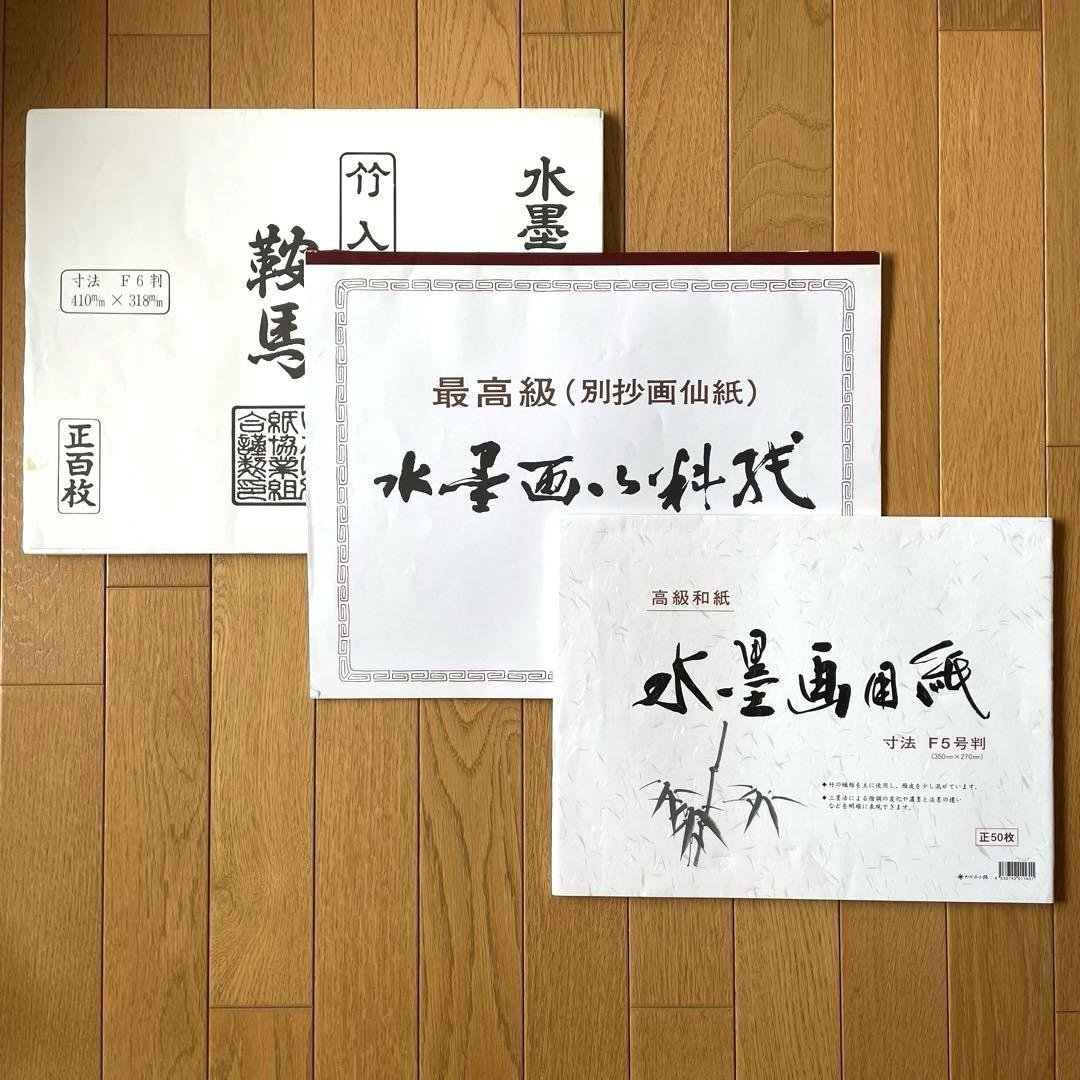 水墨
竹入
鞍馬
寸法 F6判
410m/m × 318m/m
正百枚
紙協業組
合謹製
最高級(別抄画仙紙)
水墨画
料紙
高級和紙
水墨画用紙
寸法 F5号判
(350mm×270mm)
◆竹の繊維を主に使用し、雁皮を少し混ぜています。
◆三墨法による階調の変化や濃墨と淡墨の違い
などを明確に表現できます。
正50枚
わがみ小路